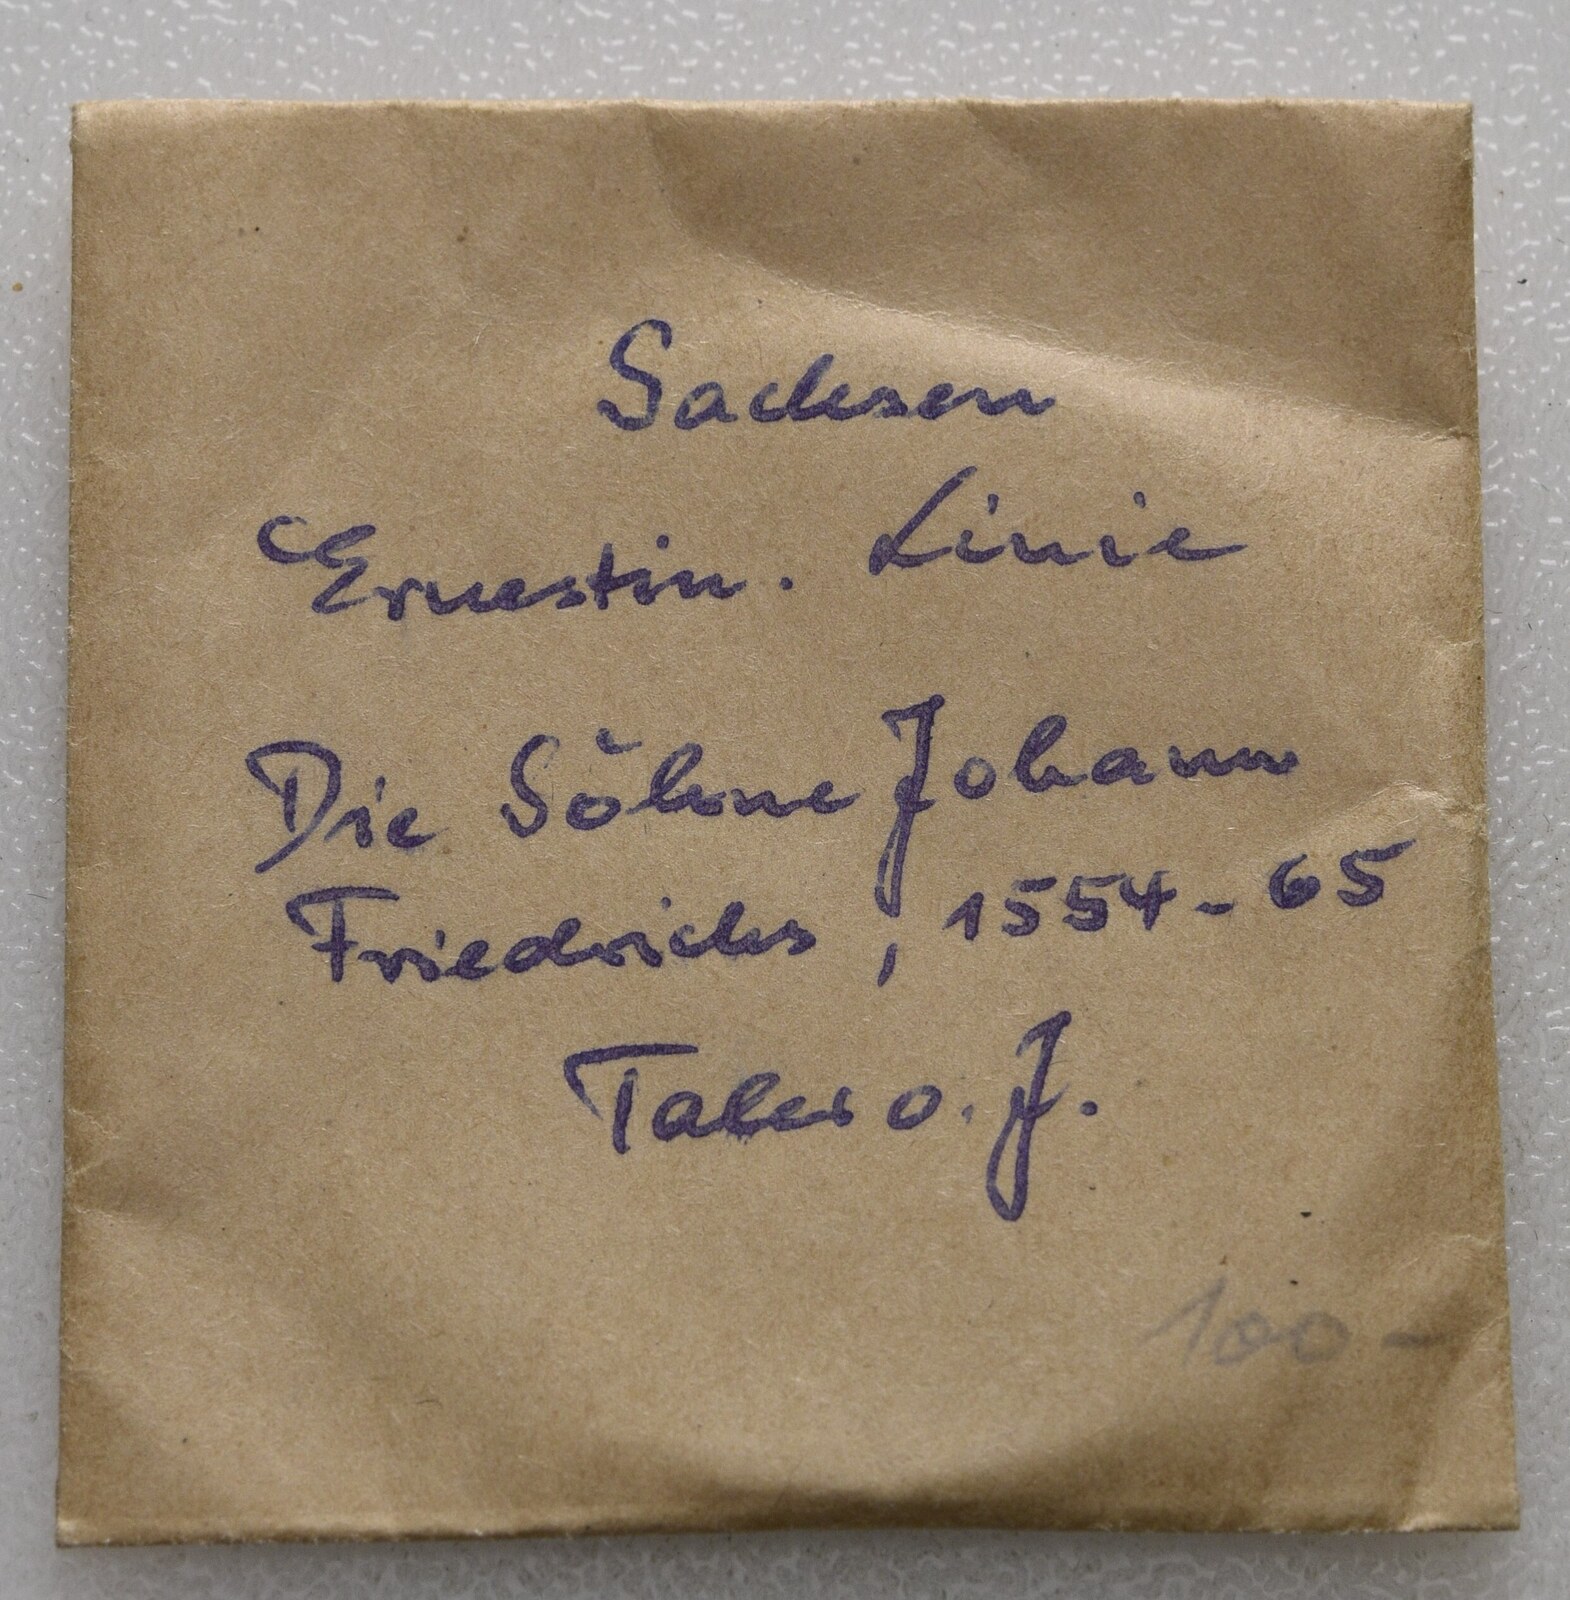 Sachsen
Ernestin. Linie
Die Söhne Johann
Friedrichs, 1554-65
Taler o. J.
100-